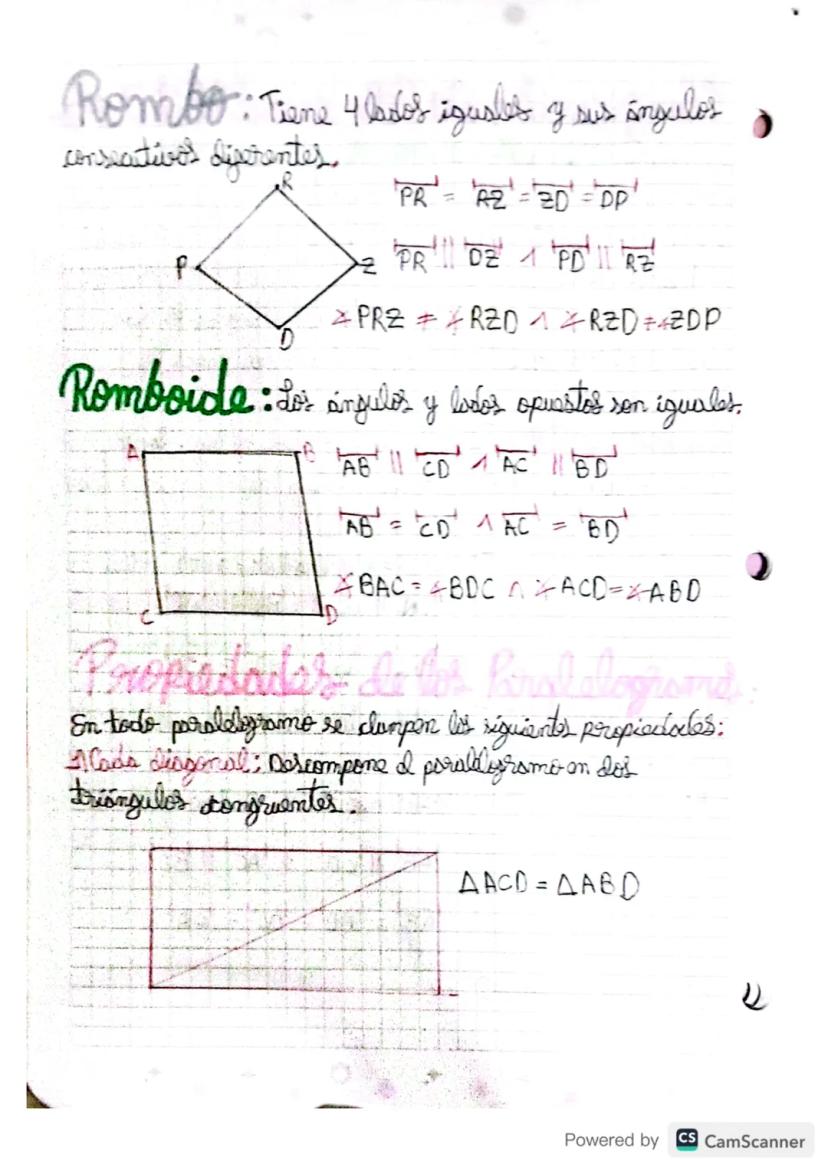 Rombo: Tiene 4 lados iguales y sus ángulos
consecutivos diferentes.
R
P
Z
D
PR = RZ = ZD = DP
PR || DZ ∧ PD || RZ
∡PRZ ≠ ∡RZD ∧ ∡RZD ≠ ∡ZDP
Romboide: Los ángulos y lados opuestos son iguales.
A
B
C
D
AB || CD ∧ AC || BD
AB = CD ∧ AC = BD
∡BAC = ∡BDC ∧ ∡ACD = ∡ABD
Propiedades de los Paralelogramos:
En todo paralelogramo se cumpen los siguientes propiedades:
1) Cada diagonal: Descompone el paralelogramo en dos
triángulos congruentes.
ΔACD = ΔABD
Powered by CS CamScanner